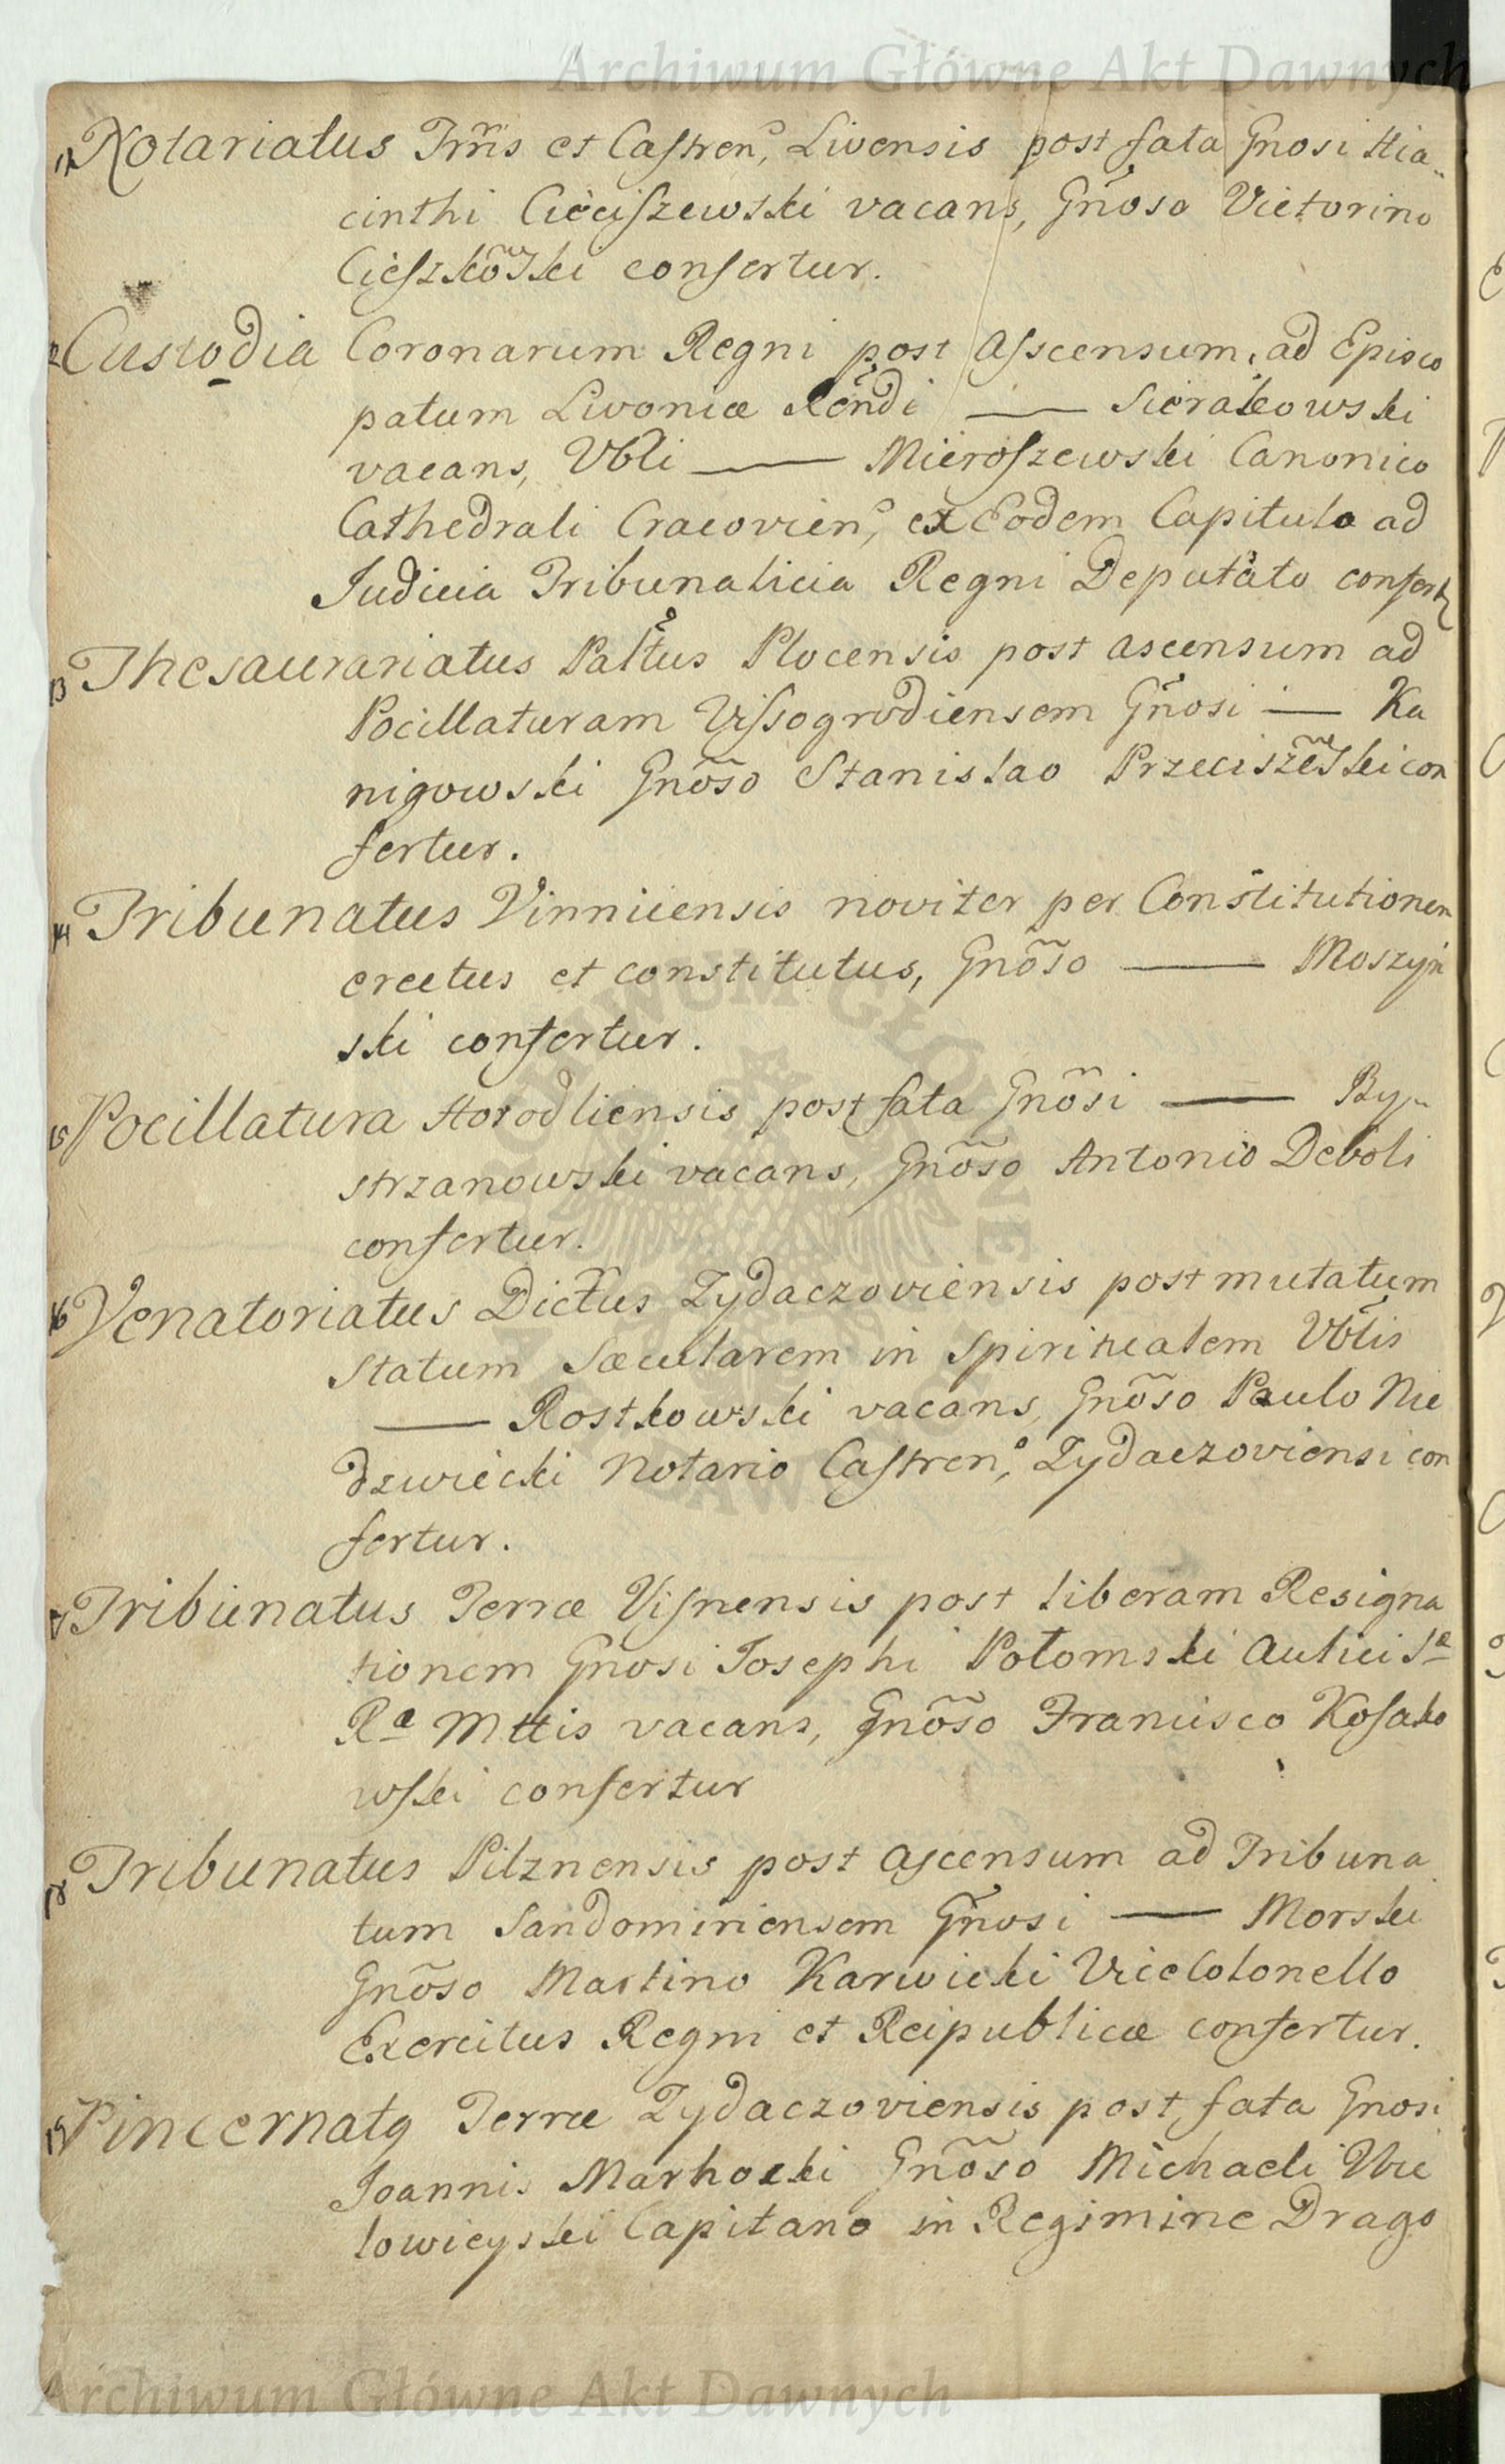 Archiwum Główne Akt Dawnych
11 Notariatus Trris et Castren, Livensis post fata Gnosi Hia-
cinthi Cieciszewski vacans, Gnoso Victorino
Cieszkowski confertur.
12 Custodia Coronarum Regni post Ascensum, ad Episco
patum Livoniæ Rendi —— Sierakowski
vacans, Vbli —— Mieroszewski Canonico
Cathedrali Cracovien, ex Eodem Capitulo ad
Judicia Tribunalicia Regni Deputato confert
13 Thesaurariatus Paltus Plocensis post ascensum ad
Pocillaturam Vissogrodiensem Gnosi — Ka
nigowski Gnoso Stanislao Przeciszewski con
fertur.
14 Tribunatus Vinnicensis noviter per Constitutionem
erectus et constitutus, Gnoso —— Moszyn
ski confertur.
15 Pocillatura Horodliensis post fata Gnosi —— By-
strzanowski vacans, Gnoso Antonio Deboli
confertur.
16 Venatoriatus Dictus Zydaczoviensis post mutatum
statum Sæcularem in spiritualem Vblis
—— Rostkowski vacans, Gnoso Paulo Nie
dzwiecki Notario Castren, Zydaczoviensi con
fertur.
17 Tribunatus Terræ Visnensis post liberam Resigna
tionem Gnosi Josephi Potomski Aulici Sæ
Ræ Mttis vacans, Gnoso Francisco Kosako
wski confertur
18 Tribunatus Pilznensis post Ascensum ad Tribuna
tum Sandomiriensem Gnosi —— Morski
Gnoso Martino Karwicki ViceColonello
Exercitus Regni et Reipublicæ confertur.
19 Pincernatq Terræ Zydaczoviensis post fata Gnosi
Joannis Marhocki Gnoso Michaeli Wie
lowieyski Capitano in Regimine Drago
Archiwum Główne Akt Dawnych